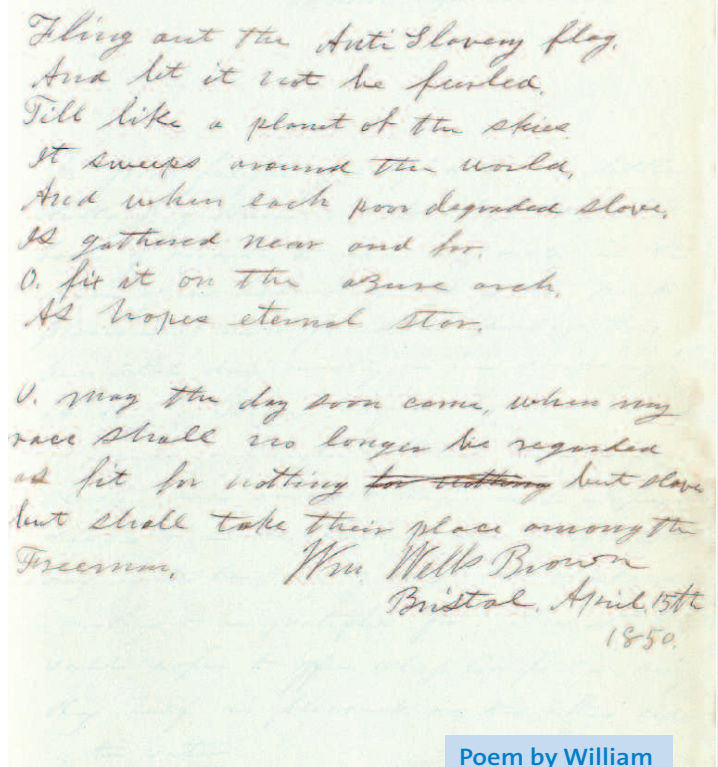 Fling out the Anti Slavery flag,
And let it not be furled,
Till like a planet of the skies
It sweeps around the world,
And when each poor degraded slave,
Is gathered near and far,
O, fix it on the azure arch,
As hopes eternal star.
O, may the day soon come, when my
race shall no longer be regarded
as fit for nothing for nothing but slaves
but shall take their place among the
Freeman,
Wm. Wells Brown
Bristol, April, 15th
1850.
Poem by William